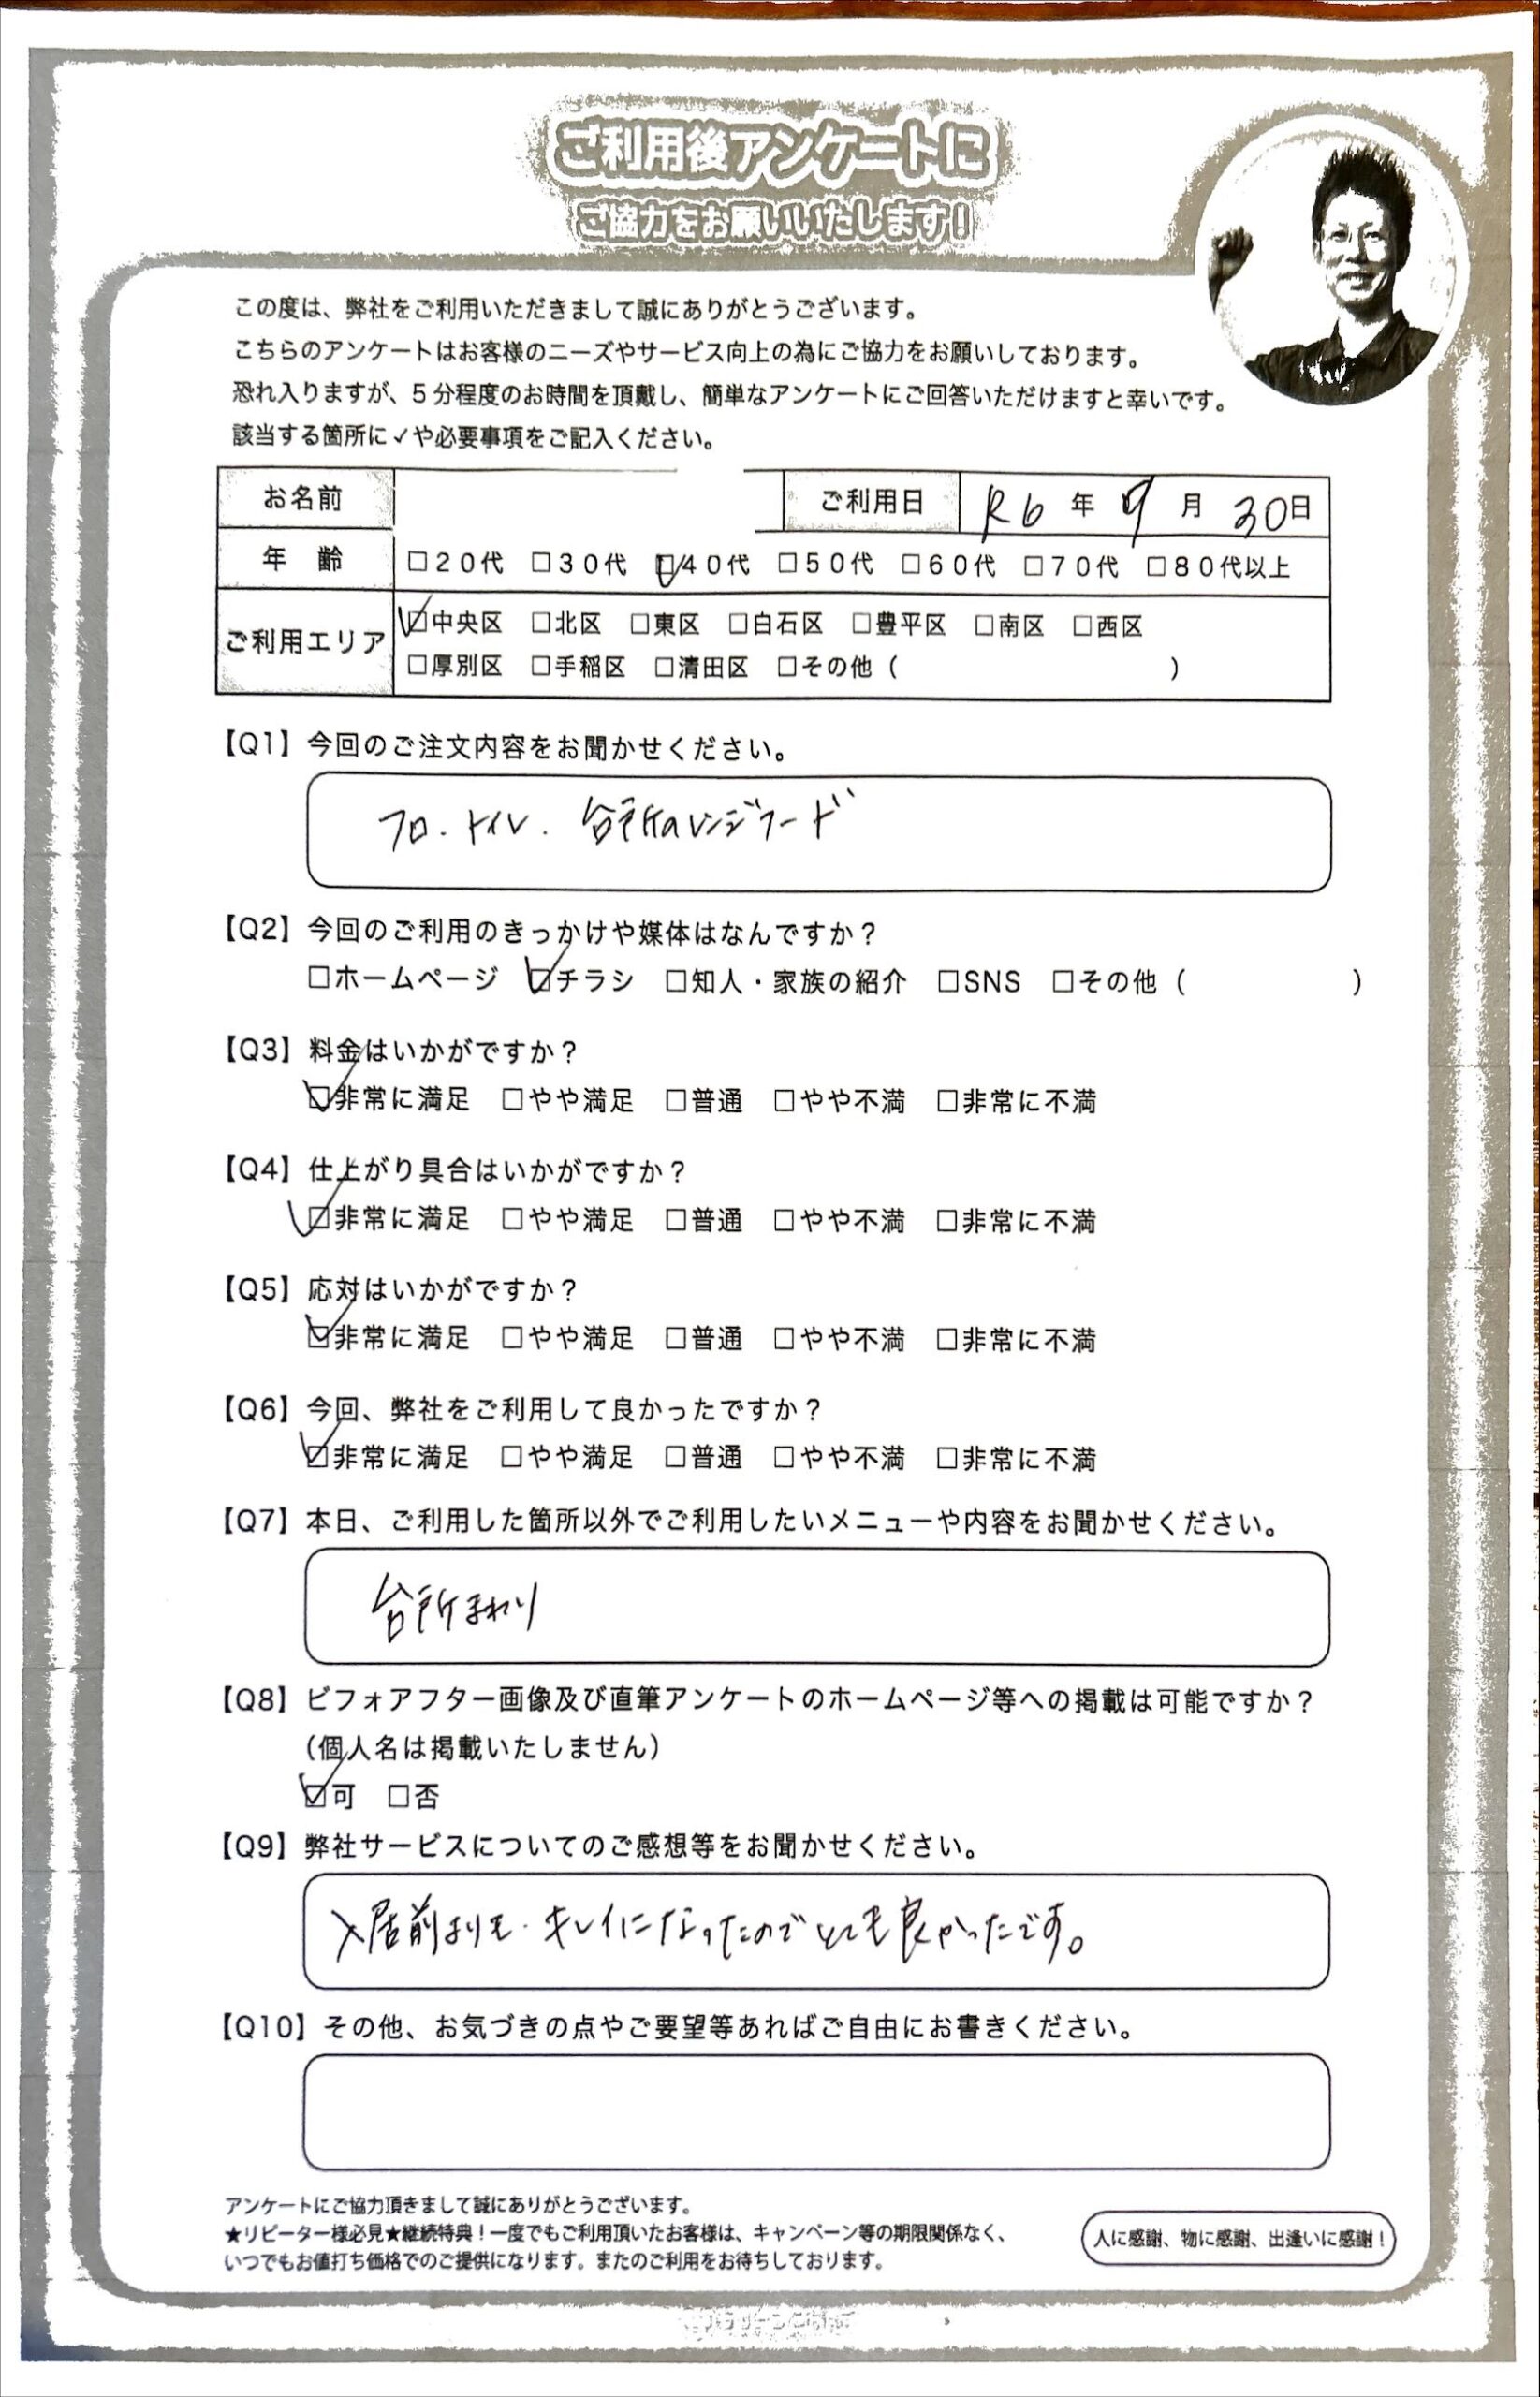 ご利用後アンケートに
ご協力をお願いいたします！
この度は、弊社をご利用いただきまして誠にありがとうございます。
こちらのアンケートはお客様のニーズやサービス向上の為にご協力をお願いしております。
恐れ入りますが、5分程度のお時間を頂戴し、簡単なアンケートにご回答いただけますと幸いです。
該当する箇所に✓や必要事項をご記入ください。
お名前 ご利用日 R6年9月30日
年齢 □20代 □30代 ☑40代 □50代 □60代 □70代 □80代以上
ご利用エリア ☑中央区 □北区 □東区 □白石区 □豊平区 □南区 □西区
□厚別区 □手稲区 □清田区 □その他（ ）
【Q1】今回のご注文内容をお聞かせください。
フロ．トイレ．台所のレンジフード
【Q2】今回のご利用のきっかけや媒体はなんですか？
□ホームページ ☑チラシ □知人・家族の紹介 □SNS □その他（ ）
【Q3】料金はいかがですか？
☑非常に満足 □やや満足 □普通 □やや不満 □非常に不満
【Q4】仕上がり具合はいかがですか？
☑非常に満足 □やや満足 □普通 □やや不満 □非常に不満
【Q5】応対はいかがですか？
☑非常に満足 □やや満足 □普通 □やや不満 □非常に不満
【Q6】今回、弊社をご利用して良かったですか？
☑非常に満足 □やや満足 □普通 □やや不満 □非常に不満
【Q7】本日、ご利用した箇所以外でご利用したいメニューや内容をお聞かせください。
台所まわり
【Q8】ビフォアフター画像及び直筆アンケートのホームページ等への掲載は可能ですか？
（個人名は掲載いたしません）
☑可 □否
【Q9】弊社サービスについてのご感想等をお聞かせください。
入居前よりも．キレイになったのでとても良かったです。
【Q10】その他、お気づきの点やご要望等あればご自由にお書きください。
アンケートにご協力頂きまして誠にありがとうございます。
★リピーター様必見★継続特典！一度でもご利用頂いたお客様は、キャンペーン等の期限関係なく、
いつでもお値打ち価格でのご提供になります。またのご利用をお待ちしております。
人に感謝、物に感謝、出逢いに感謝！